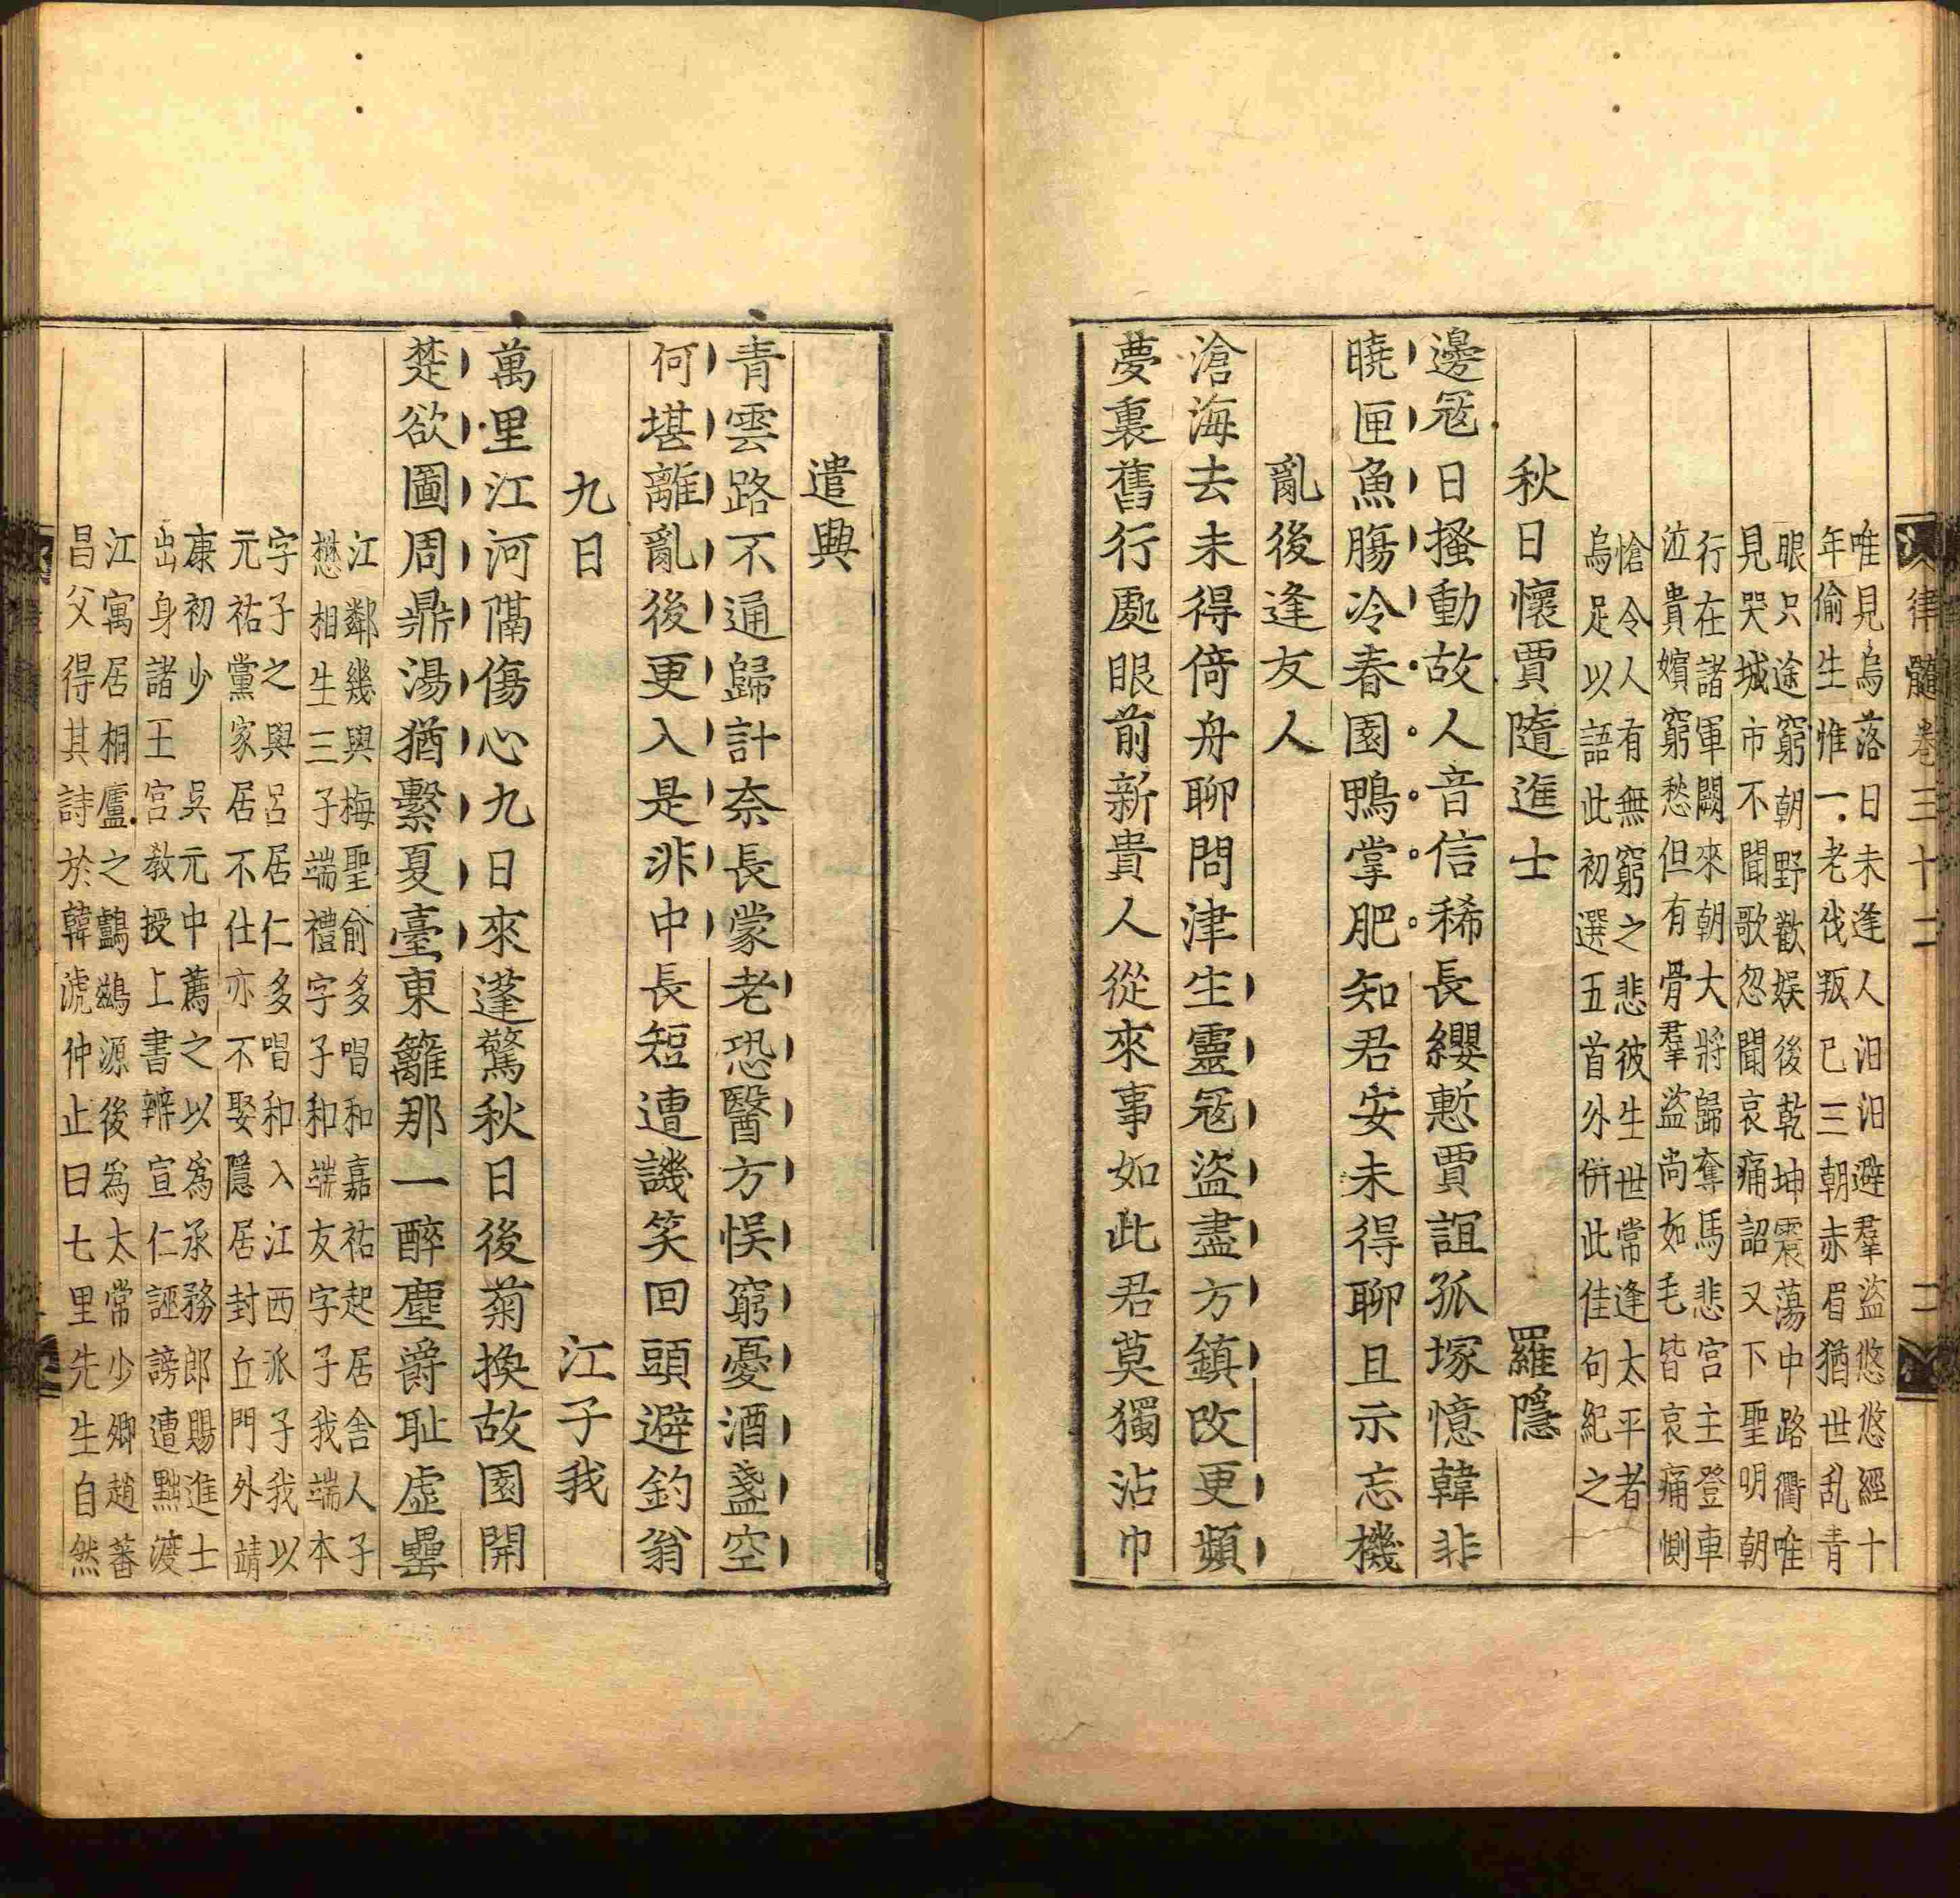 律髓卷三十二
二
唯見烏落日未逢人汨汨避羣盜悠悠經十
年偷生惟一老伐叛已三朝赤眉猶世乱青
眼只途窮朝野歡娱後乾坤震蕩中路衢唯
見哭城市不聞歌忽聞哀痛詔又下聖明朝
行在諸軍闕來朝大將歸奪馬悲宮主登車
泣貴嬪窮愁但有骨羣盜尚如毛皆哀痛惻
愴令人有無窮之悲彼生世常逢太平者
烏足以語此初選五首外併此佳句紀之
秋日懷賈隨進士 羅隱
邊冦日搔動故人音信稀長纓慙賈誼孤塚憶韓非
曉匣魚膓冷春園鴨掌肥知君安未得聊且示忘機
亂後逢友人
滄海去未得倚舟聊問津生靈冦盜盡方鎮改更頻
夢裏舊行處眼前新貴人從來事如此君莫獨沾巾
遣興
青雲路不通歸計奈長蒙老恐醫方悮窮憂酒盞空
何堪離亂後更入是非中長短遭譏笑回頭避釣翁
九日 江子我
萬里江河隔傷心九日來蓬驚秋日後菊換故園開
楚欲圖周鼎湯猶繫夏臺東籬那一醉塵爵耻虛罍
江鄰幾與梅聖俞多唱和嘉祐起居舍人子
懋相生三子端禮字子和端友字子我端本
字子之與呂居仁多唱和入江西派子我以
元祐黨家居不仕亦不娶隱居封丘門外靖
康初少吳元中薦之以爲承務郎賜進士
出身諸王宮敎授上書辨宣仁誣謗遭黜渡
江寓居桐廬之鸕鷀源後爲太常少卿趙蕃
昌父得其詩於韓淲仲止曰七里先生自然